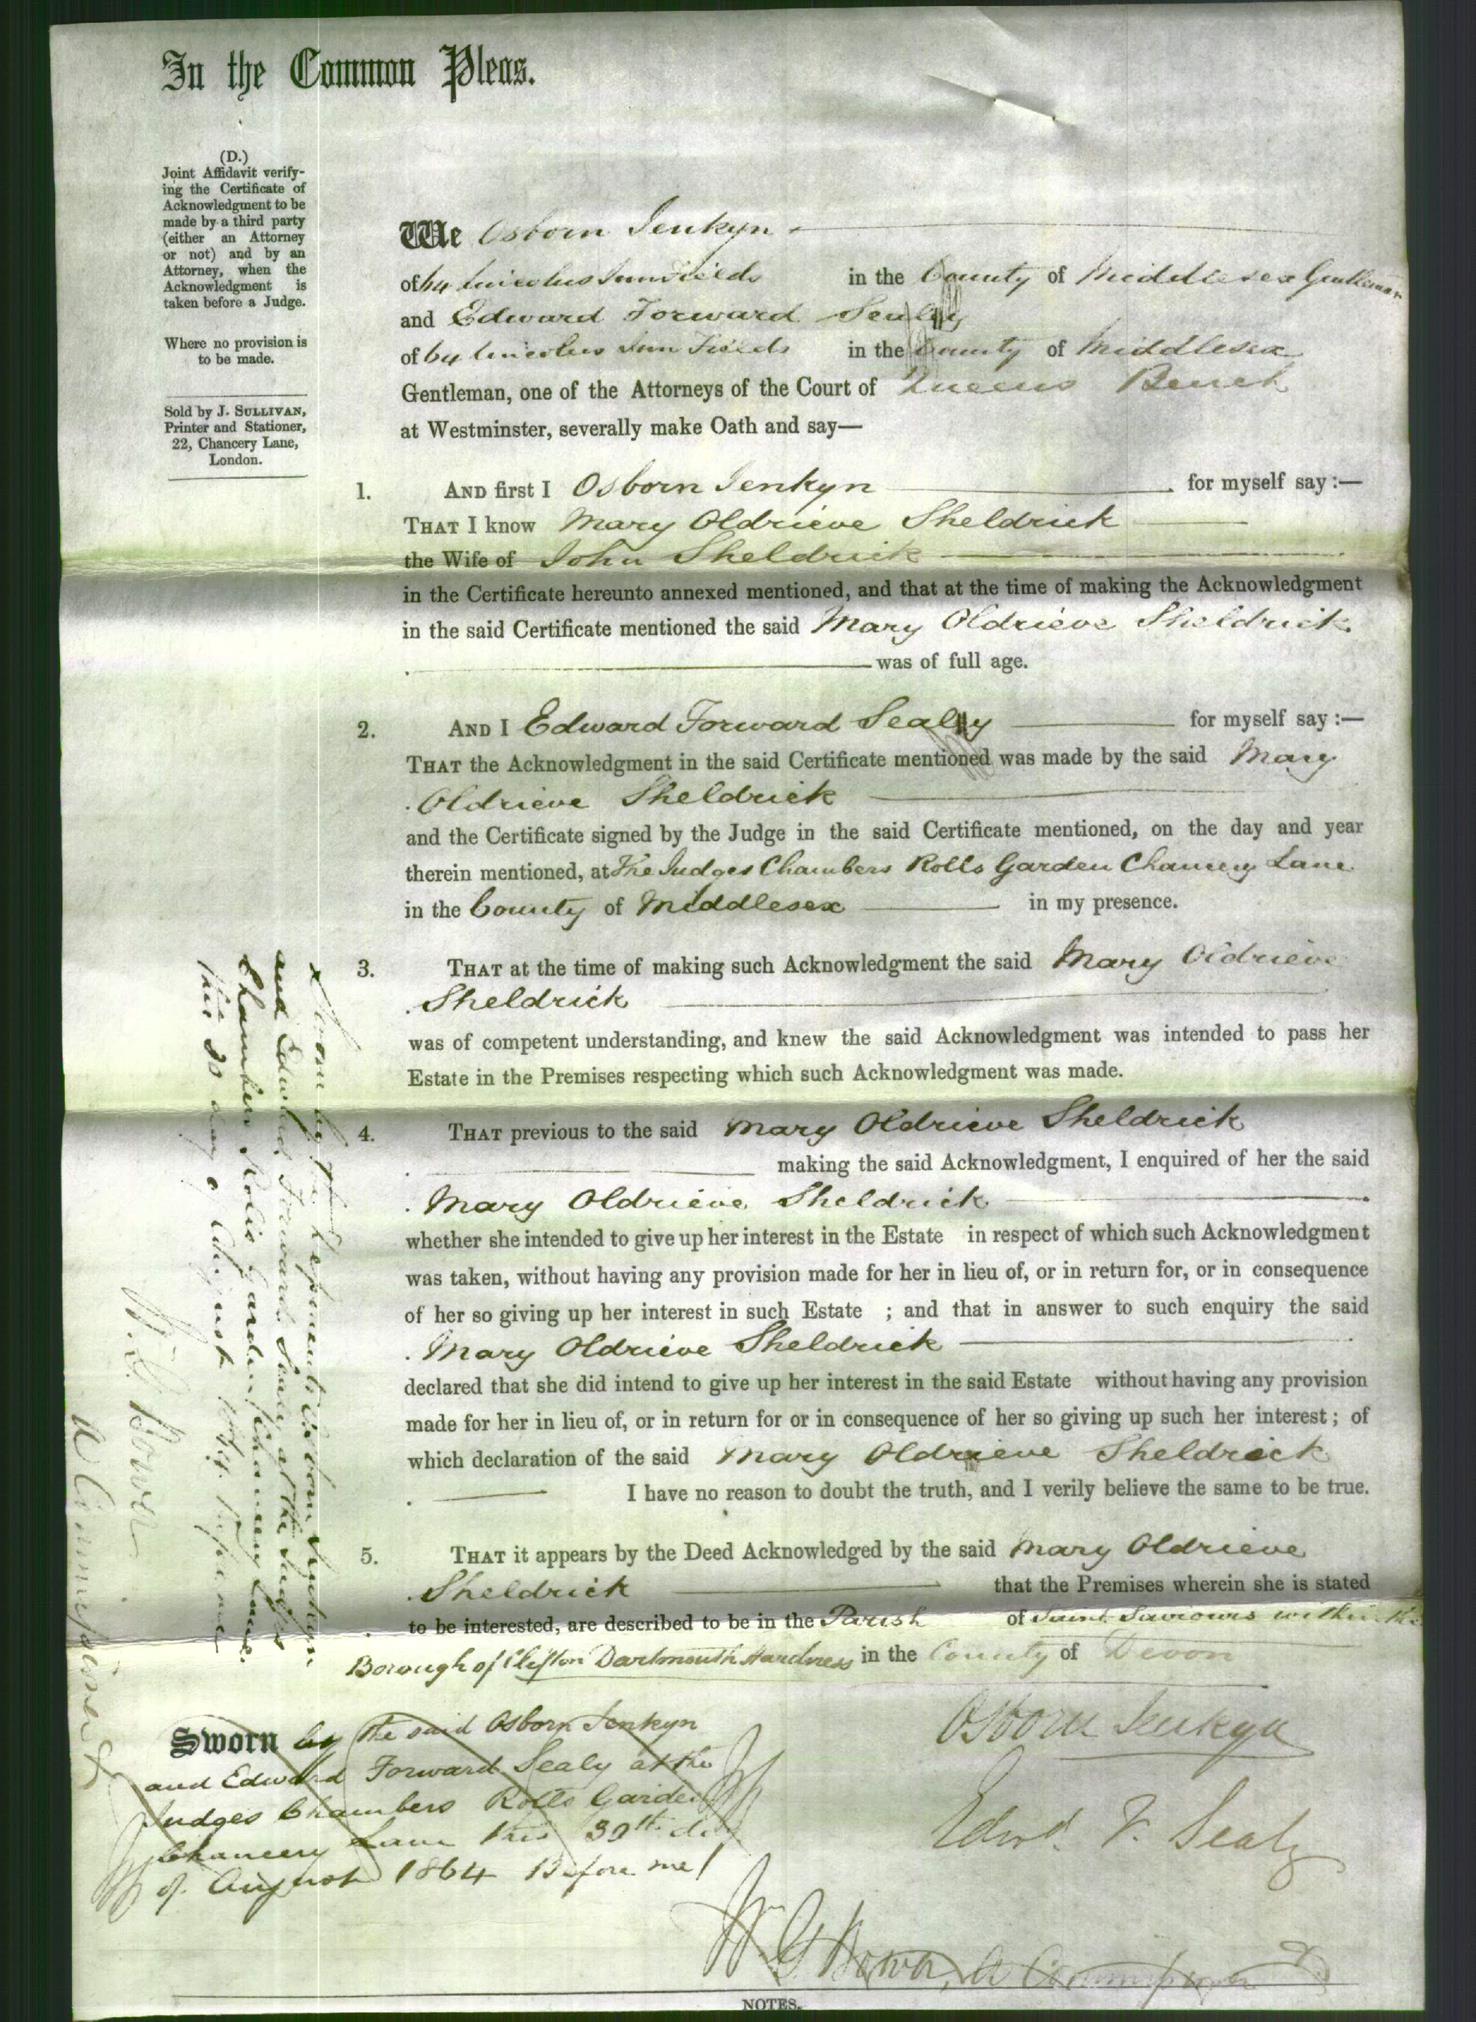 In the Common Pleas.
(D.)
Joint Affidavit verify-
ing the Certificate of
Acknowledgment to be
made by a third party
(either an Attorney
or not) and by an
Attorney, when the
Acknowledgment is
taken before a Judge.
Where no provision is
to be made.
Sold by J. SULLIVAN,
Printer and Stationer,
22, Chancery Lane,
London.
We Osborn Jenkyn
of 64 Lincolns Inn Fields in the County of Middlesex Gentleman
and Edward Forward Sealy
of 64 Lincolns Inn Fields in the County of Middlesex
Gentleman, one of the Attorneys of the Court of Queens Bench
at Westminster, severally make Oath and say—
1. AND first I Osborn Jenkyn for myself say :—
THAT I know Mary Oldrieve Sheldrick
the Wife of John Sheldrick
in the Certificate hereunto annexed mentioned, and that at the time of making the Acknowledgment
in the said Certificate mentioned the said Mary Oldrieve Sheldrick
was of full age.
2. AND I Edward Forward Sealy for myself say :—
THAT the Acknowledgment in the said Certificate mentioned was made by the said Mary
Oldrieve Sheldrick
and the Certificate signed by the Judge in the said Certificate mentioned, on the day and year
therein mentioned, at The Judges Chambers Rolls Garden Chancery Lane
in the County of Middlesex in my presence.
3. THAT at the time of making such Acknowledgment the said Mary Oldrieve
Sheldrick
was of competent understanding, and knew the said Acknowledgment was intended to pass her
Estate in the Premises respecting which such Acknowledgment was made.
4. THAT previous to the said Mary Oldrieve Sheldrick
making the said Acknowledgment, I enquired of her the said
Mary Oldrieve Sheldrick
whether she intended to give up her interest in the Estate in respect of which such Acknowledgment
was taken, without having any provision made for her in lieu of, or in return for, or in consequence
of her so giving up her interest in such Estate ; and that in answer to such enquiry the said
Mary Oldrieve Sheldrick
declared that she did intend to give up her interest in the said Estate without having any provision
made for her in lieu of, or in return for or in consequence of her so giving up such her interest ; of
which declaration of the said Mary Oldrieve Sheldrick
I have no reason to doubt the truth, and I verily believe the same to be true.
5. THAT it appears by the Deed Acknowledged by the said Mary Oldrieve
Sheldrick that the Premises wherein she is stated
to be interested, are described to be in the Parish of Saint Saviours within the
Borough of Clifton Dartmouth Hardness in the County of Devon
Sworn by the said Osborn Jenkyn
and Edward Forward Sealy at the
Judges Chambers Rolls Garden
Chancery Lane this 30th day
of August 1864 Before me
Osborn Jenkyn
Edwd. F. Sealy
W G Bower, A Commissioner
x Sworn by the Deponents Osborn Jenkyn
and Edward Forward Sealy at the Judges
Chambers Rolls Garden Chancery Lane.
this 30 day of August 1864 Before me
W. G. Bower
A Commissioner &
NOTES.